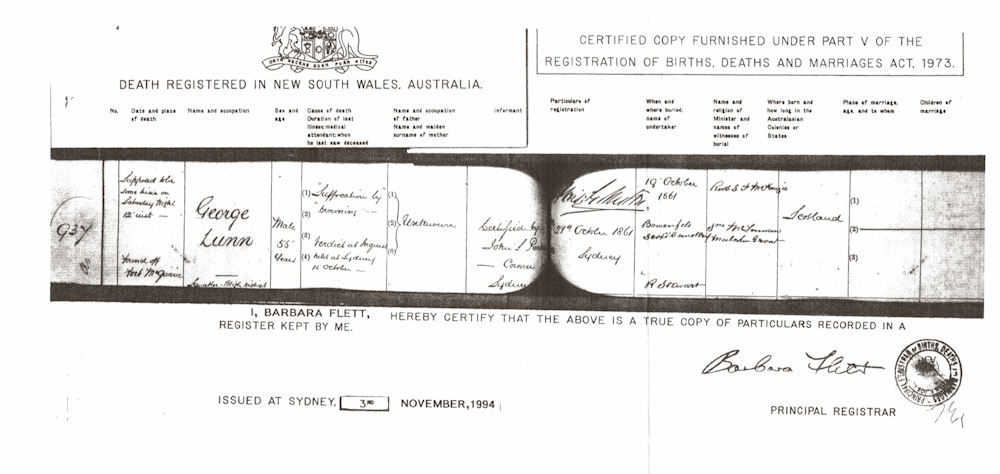 DEATH REGISTERED IN NEW SOUTH WALES, AUSTRALIA.
CERTIFIED COPY FURNISHED UNDER PART V OF THE
REGISTRATION OF BIRTHS, DEATHS AND MARRIAGES ACT, 1973.
No.
Date and place
of death
Name and occupation
Sex and
age
Cause of death
Duration of last
illness;medical
attendant;when
he last saw deceased
Name and occupation
of father
Name and maiden
surname of mother
Informant
Particulars of
registration
When and
where buried;
name of
undertaker
Name and
religion of
Minister and
names of
witnesses of
burial
Where born and
how long in the
Australasian
Colonies or
States
Place of marriage,
age, and to whom
Children of
marriage
937
Supposed to be
some time on
Saturday Night
12 inst
found off
Fort McQuarie
George
Lunn
Male
55
Years
(1) "Suffocation by"
(2) "Drowning"
(3) Verdict at Inquest
(4) held at Sydney
October
(1)
(2) Unknown
(3)
Certified by
John S
Coroner
Sydney
October 1861
Sydney
19 October
1861
Scotch Cemetery
R Stewart
McKenzie
Scotland
(1)
(2)
(3)
I, BARBARA FLETT, HEREBY CERTIFY THAT THE ABOVE IS A TRUE COPY OF PARTICULARS RECORDED IN A
REGISTER KEPT BY ME.
Barbara Flett
ISSUED AT SYDNEY, 3RD NOVEMBER,1994
PRINCIPAL REGISTRAR